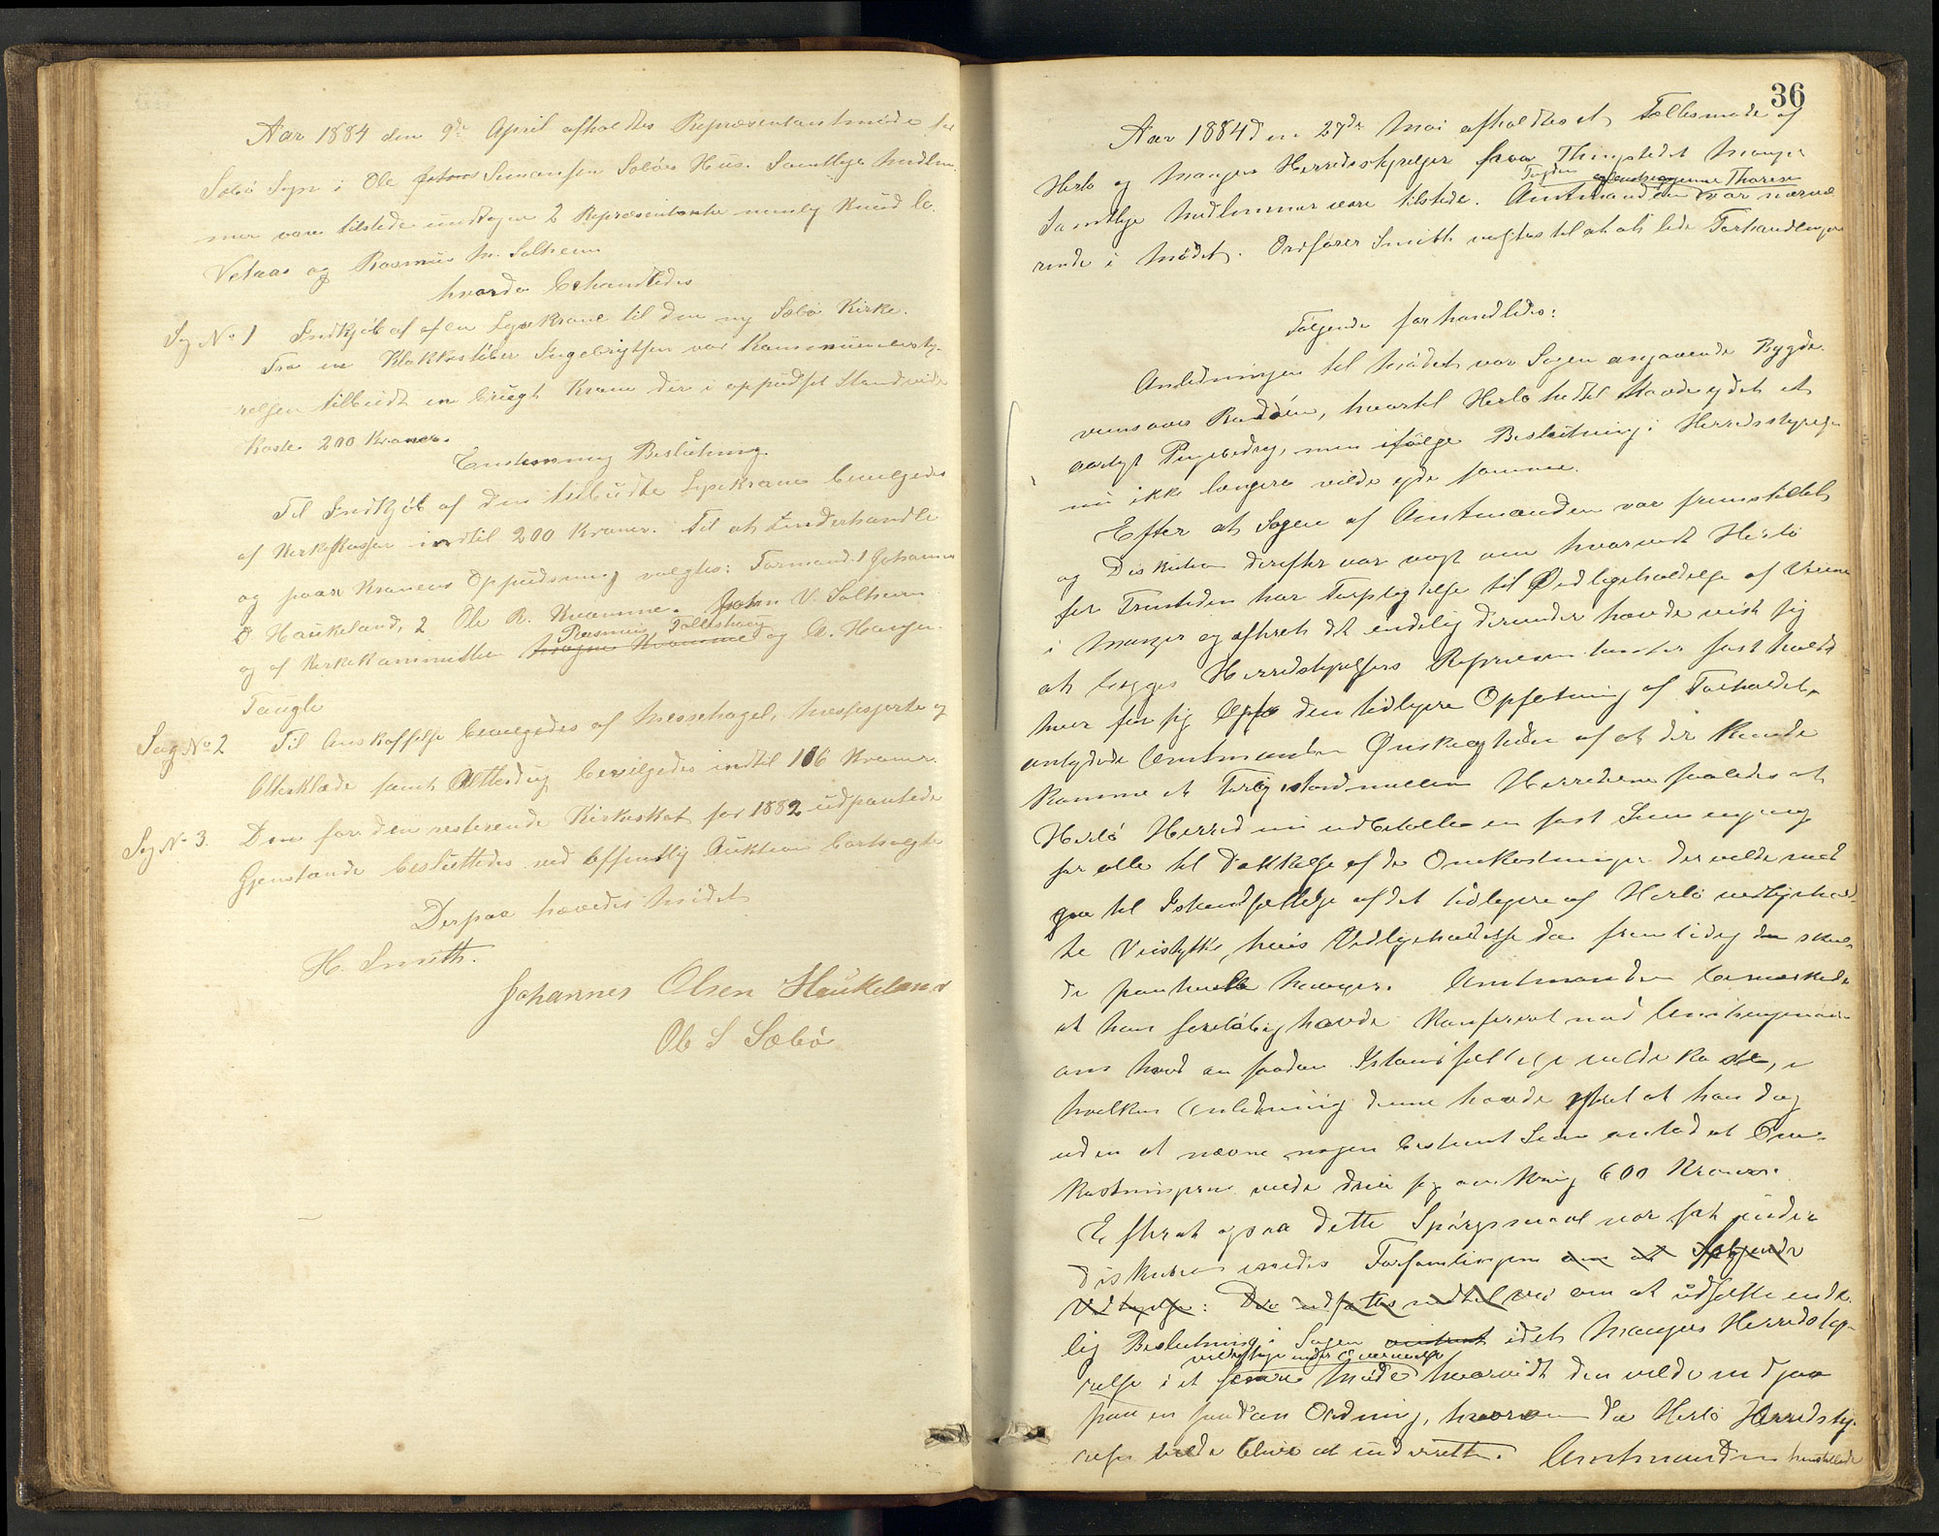 Aar 1884 den 9de April afholdtes Repræsentantmøde for
Sæbø Sogn i Ole Simonsen Sæbøes Hus. Samtlige Medlem-
mer vare tilstede undtagen 2 Repræsentanter nemlig Knud O.
Vetaas og Rasmus M. Solheim
hvorda behandledes
Sag No 1 Indkjøb af en Lysekrone til den ny Sæbø Kirke.
Fra en Klokkestøber Ingebrigtsen var Kommunebesty-
relsen tilbudt en brugt Krone der i oppudset Stand vilde
koste 200 Kroner.
Enstemmig Beslutning.
Til Indkjøb af den tilbudte Lysekrone bevilgedes
af Kirkekassen indtil 200 Kroner. Til at underhandle
og paase Kronens Oppudsning valgtes: Formand. 1 Johannes
O Haukeland, 2 Ole R. Kvamme. John V. Solheim
Rasmus Tolleshaug
og af Kirkekommitteen Kvamme og A. Haugen
Taugle
Sag No 2 Til Anskaffelse bevilgedes af Messehagel, Messeskjorte og
Alterklæde samt Alterdug bevilgedes indtil 106 Kroner.
Sag No 3. De for den resterende Kirkeskat for 1882 udpantede
Gjenstande besluttedes ved offentlig Auktion bortsolgte
Derpaa hævedes Mødet
H. Smith.
Johannes Olsen Haukeland
Ole S Sæbø
36
Aar 1884 den 27de Mai afholdtes et Fællesmøde af
Herlø og Mangers Herredsstyrelser paa Thingstedet Manger
Thoresen
Samtlige Medlemmer vare tilstede. Amtmanden var nærvæ
rende i Mødet. Ordfører Smith valgtes til at lede Forhandlingen
Følgende forhandledes:
Anledningen til Mødet var Sagen angaaende Bygde-
veien over Radøen, hvortil Herlø hidtil havde ydet et
aarligt Pengebidrag, men ifølge Beslutning i Herredsstyrelsen
nu ikke længere vilde yde samme.
Efter at Sagen af Amtmanden var fremstillet
og Diskution derefter var vagt om hvorvidt Herlø
for Fremtiden har Forpligtelse til Vedligeholdelse af Veiene
i Manger og efterat det endelig derunder havde vist sig
at begge Herredsstyrelsers Repræsentanter fastholdt
hver for sig den tidligere Opfatning af Forholdet,
antydede Amtmanden Ønskeligheden af at der kunde
komme et Forlig istand mellem Herrederne saaledes at
Herlø Herred nu udbetalte en fast Sum engang
for alle til Dækkelse af de Omkostninger der vilde med
gaa til Istandsættelse af det tidligere af Herlø vedligehold-
te Veistykke, hvis Vedligeholdelse da fremtidig skul-
de paahvile Manger. Amtmanden bemærkede
at han foreløbig havde konfereret med Amtsingeniøren
om hvad en saadan Istandsættelse vilde koste, i
hvilken Anledning denne havde yttret at han dog
uden at nævne nogen bestemt Sum antod at Om-
kostningerne vilde dreie sig omkring 600 Kroner.
Efterat ogsaa dette Spørgsmaal var sat under
diskusion enedes Forsamlingen om at følgende
Vedtagelse: om at udsætte ende-
lig Beslutning i Sagen idet Mangers Herredssty-
relse i et senere Møde hvorvidt den vilde indgaa
paa en saadan Ordning, hvorom da Herlø Herredssty-
relse vilde blive at underrette. Amtmanden henstillede